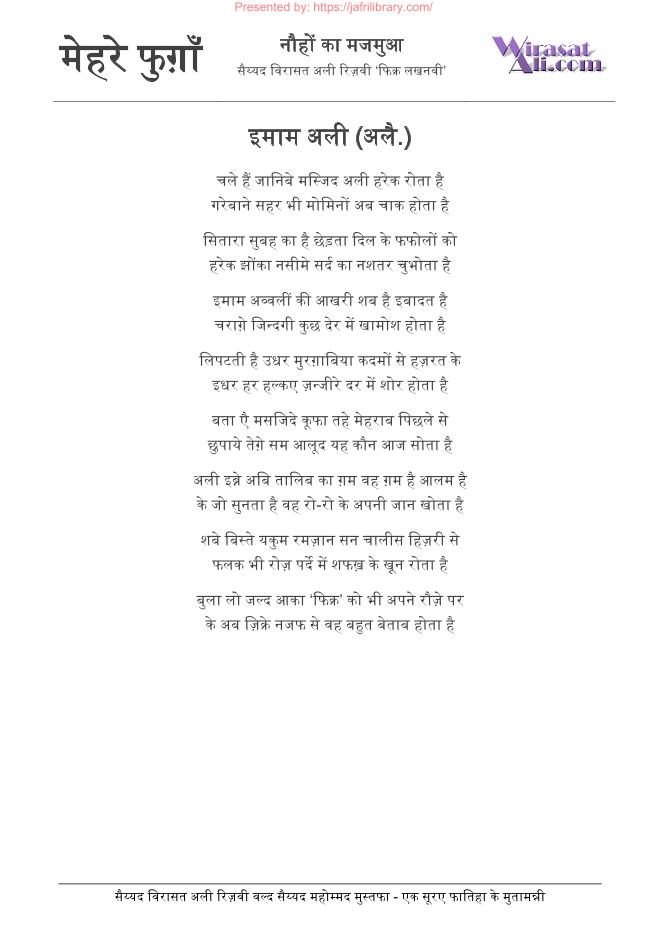 Presented by: https://jafrilibrary.com/
मेहरे फुग़ाँ
नौहों का मजमुआ
सैय्यद विरासत अली रिज़वी ‘फिक्र लखनवी’
Wirasat
Ali.com
इमाम अली (अलै.)
चले हैं जानिबे मस्जिद अली हरेक रोता है
गरेबाने सहर भी मोमिनों अब चाक होता है
सितारा सुबह का है छेड़ता दिल के फफोलों को
हरेक झोंका नसीमे सर्द का नशतर चुभोता है
इमाम अव्वलीं की आखरी शब है इबादत है
चराग़े जिन्दगी कुछ देर में खामोश होता है
लिपटती है उधर मुरग़ाबिया कदमों से हज़रत के
इधर हर हल्कए ज़न्जीरे दर में शोर होता है
बता एै मसजिदे कूफा तहे मेहराब पिछले से
छुपाये तेग़े सम आलूद यह कौन आज सोता है
अली इब्ने अबि तालिब का ग़म वह ग़म है आलम है
के जो सुनता है वह रो-रो के अपनी जान खोता है
शबे बिस्ते यकुम रमज़ान सन चालीस हिज़री से
फलक भी रोज़ पर्दे में शफख़ के खून रोता है
बुला लो जल्द आका ‘फिक्र’ को भी अपने रौज़े पर
के अब ज़िक्रे नजफ से वह बहुत बेताब होता है
सैय्यद विरासत अली रिज़वी वल्द सैय्यद महोम्मद मुस्तफा - एक सूरए फातिहा के मुतामन्नी